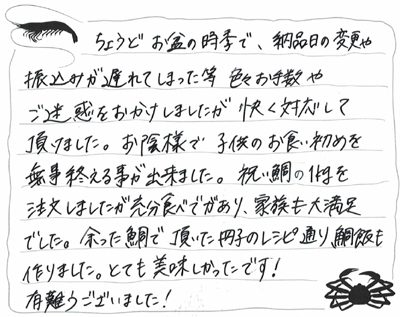 ちょうど お盆の時季で、納品日の変更や
振込みが遅れてしまった等 色々お手数や
ご迷惑をおかけしましたが 快く対応して
頂けました。お陰様で 子供のお食い初めを
無事終える事が出来ました。祝い鯛の1件を
注文しましたが充分食べでがあり、家族も大満足
でした。余った鯛で 頂いた冊子のレシピ通り、鯛飯も
作りました。とても美味しかったです!
有難うございました!